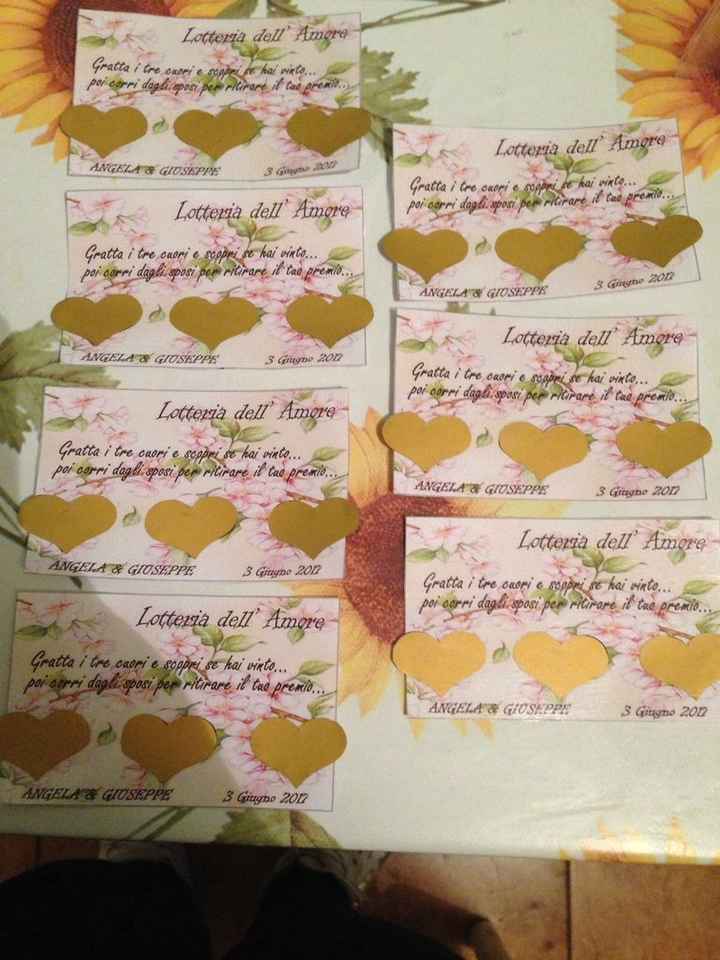 Lotteria dell' Amore
Gratta i tre cuori e scopri se hai vinto...
poi corri dagli sposi per ritirare il tuo premio...
ANGELA & GIUSEPPE 3 Giugno 2017
Lotteria dell' Amore
Gratta i tre cuori e scopri se hai vinto...
poi corri dagli sposi per ritirare il tuo premio...
ANGELA & GIUSEPPE 3 Giugno 2017
Lotteria dell' Amore
Gratta i tre cuori e scopri se hai vinto...
poi corri dagli sposi per ritirare il tuo premio...
ANGELA & GIUSEPPE 3 Giugno 2017
Lotteria dell' Amore
Gratta i tre cuori e scopri se hai vinto...
poi corri dagli sposi per ritirare il tuo premio...
ANGELA & GIUSEPPE 3 Giugno 2017
Lotteria dell' Amore
Gratta i tre cuori e scopri se hai vinto...
poi corri dagli sposi per ritirare il tuo premio...
ANGELA & GIUSEPPE 3 Giugno 2017
Lotteria dell' Amore
Gratta i tre cuori e scopri se hai vinto...
poi corri dagli sposi per ritirare il tuo premio...
ANGELA & GIUSEPPE 3 Giugno 2017
Lotteria dell' Amore
Gratta i tre cuori e scopri se hai vinto...
poi corri dagli sposi per ritirare il tuo premio...
ANGELA & GIUSEPPE 3 Giugno 2017